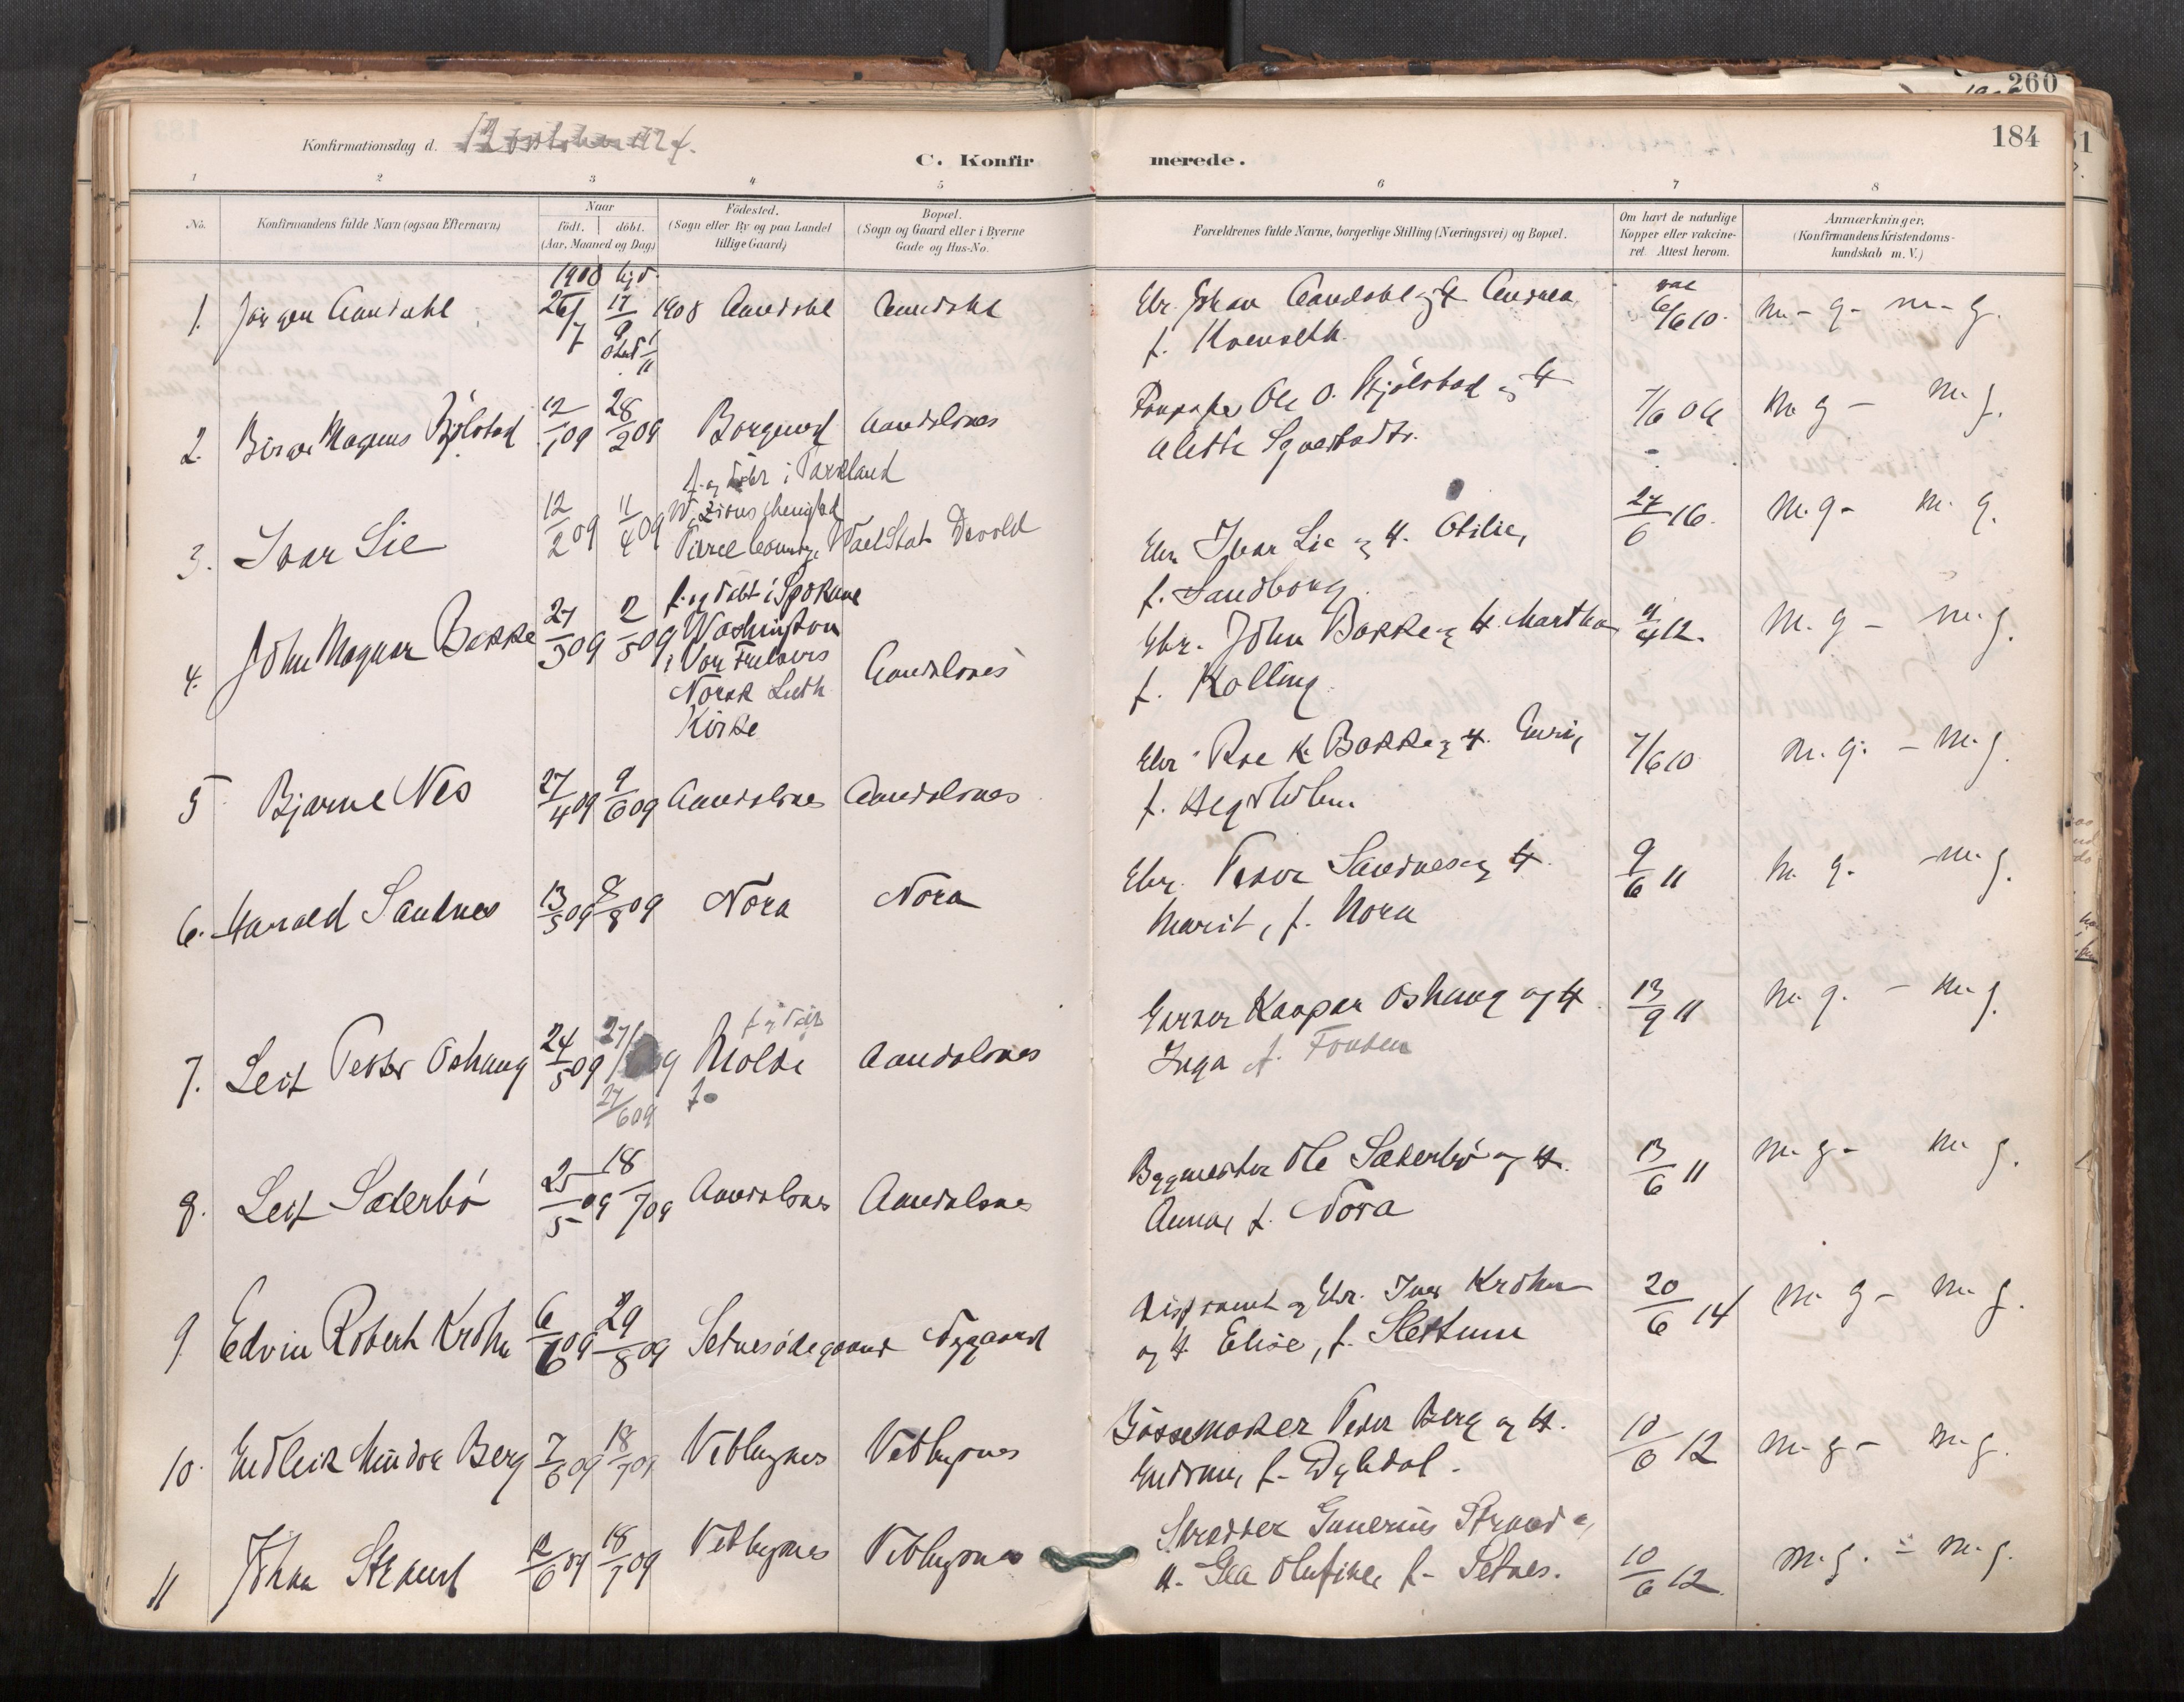 260
184
Konfirmationsdag d.
C. Konfirmerede.
1 2 3 4 5 6 7 8
No.
Konfirmandens fulde Navn (ogsaa Efternavn)
Naar
födt. döbt.
(Aar, Maaned og Dag)
Födested.
(Sogn eller By og paa Landet
tillige Gaard)
Bopæl.
(Sogn og Gaard eller i Byerne
Gade og Hus-No.
Forældrenes fulde Navne, borgerlige Stilling (Næringsvei) og Bopæl.
Om havt de naturlige
Kopper eller vakcine-
ret. Attest herom.
Anmærkninger.
(Konfirmandens Kristendoms-
kundskab m. V.)
1908
1. Jörgen Aandahl 26/7 17/9 1908 Aandahl Aandahl
Ebr. Johan Aandahl og H. Andrea
f.
vac 6/6 10. M-g- m-g.
2. Birger Magnus Bjölstad 12/1 09 28/2 09 Borgund Aandalsnes
Ole O. Bjölstad og H
Alette
7/6 M g - M g.
f. og döbt i Parkland
3. Ivar Lie 12/2 09 11/4 09 W. Zions menighed
Pierce County, Wash Stat Devold
Ebr Ivar Lie og H. Otilie,
f. Sandborg
27/6 16. M.g- M. g.
4. John Magnar Bakke 27/3 09 2/5 09 f. og döbt i Spokane
Washington
i Vor Frelsers
Norsk Luth
Kirke
Aandalsnes
Ebr. John Bakke og H. Martha
f. Kolling
4/4 12. M. g - m. g.
5 Bjarne Nes 27/4 09 9/6 09 Aandalsnes Aandalsnes
Ebr K. Bakke og H. Guri,
f.
7/6 10 M. g. - M. g.
6. Harald Sandnes 13/5 09 8/8 09 Nora Nora
Ebr. Peder Sandnes og H.
Marit, f. Nora
9/6 11 M. g. - m. g.
7. Leif Petter Oshaug 24/5 09 27/ 9 f og döbt
Molde
27/6 09
Aandalsnes
Kaspar Oshaug og H.
Inga f. Fonden
13/9 11 M. g. - M. g.
8. Leif Sæterbö 25/5 09 18/7 09 Aandalsnes Aandalsnes
Bygmester Ole Sæterbö og H.
Anna, f. Nora
13/6 11 M. g- M. g.
9 Edvin Robert Krohn 6/6 09 29/8 09 Setnesödegaard Nygaard
og Ebr. Iver Krohn
og H Elise, f. Slettum
20/6 14 M g - M g.
10. Endleik Mindor Berg 7/6 09 18/7 09 Veblugnes Veblugnes
Bössemaker Peder Berg og H.
f. Dyhdal.
10/6 12 M- g - M- g.
11 Johan Strand 12/6 09 18/7 09 Veblugnes Veblugnes
Skrædder Gunerius Strand og
H. Gea Olufine, f- Setnes.
10/6 12. M. g. - M. g.